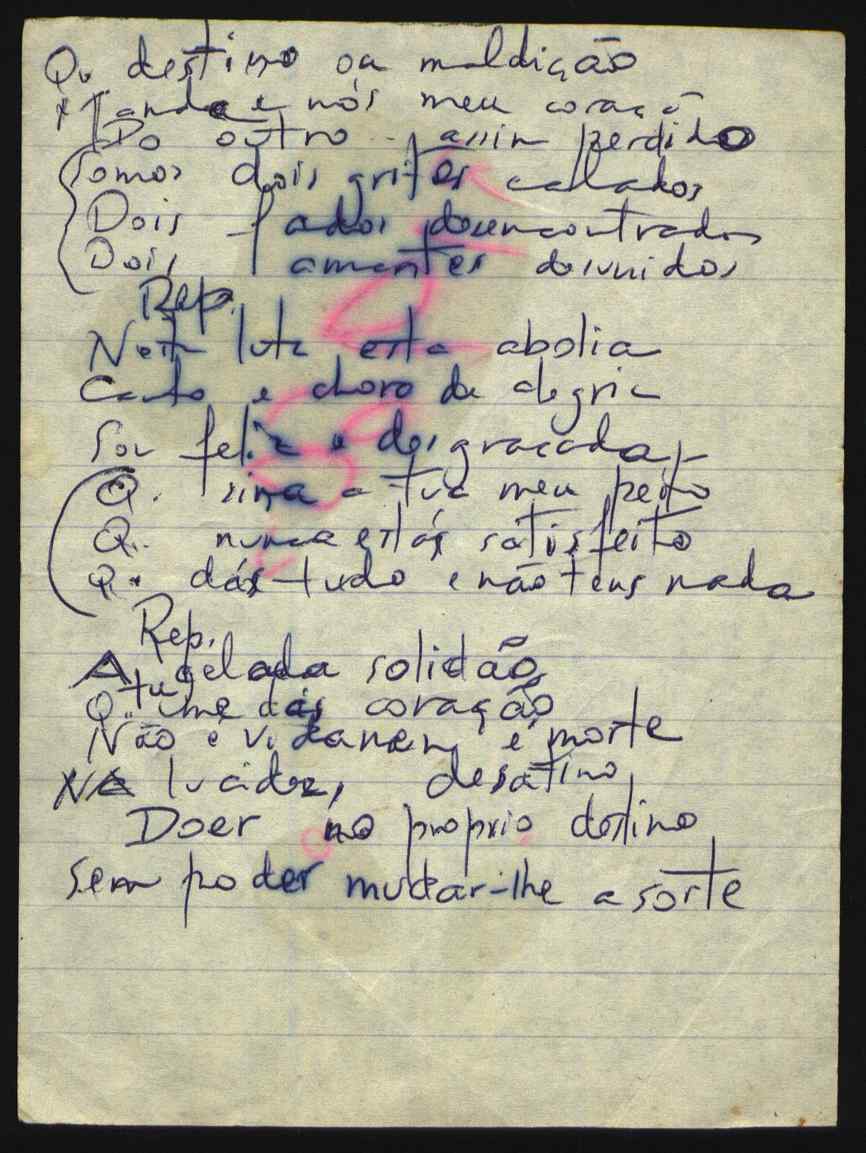 Q. destino ou maldição
Manda e nós meu coração
Do outro .. assim perdido
Somos dois gritos calados
Dois fados desencontrados
Dois amantes desunidos
Rep.
luta esta
Canto e choro de alegria
Sou feliz e desgraçada
Q. sina a tua meu peito
Q. nunca estás satisfeito
Q. dás tudo e não tens nada
Rep.
A gelada solidão
Q. tu me dás coração
Não é vida nem é morte
lucidez, desatino
Doer no proprio destino
Sem poder mudar-lhe a sorte